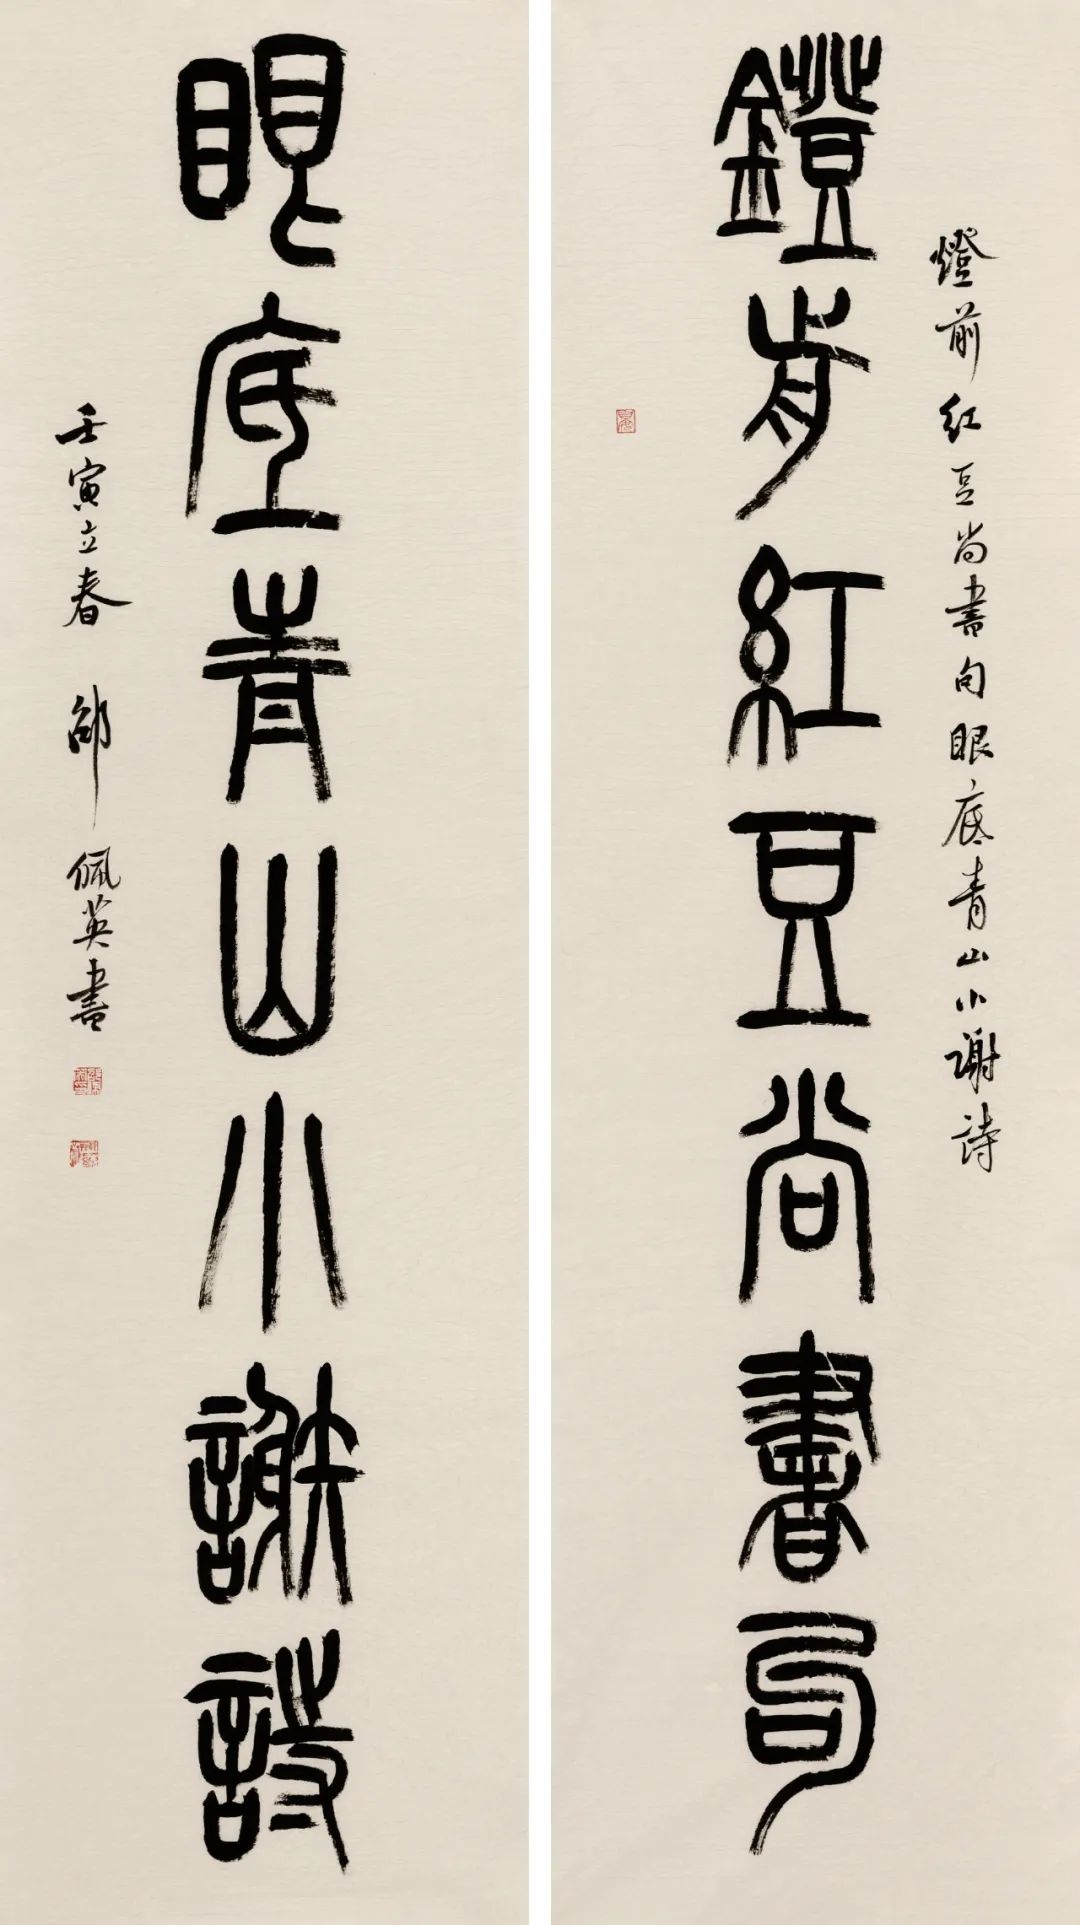 燈前紅豆尚書句眼底青山小謝詩
鐙前紅豆尚書句
眼底青山小謝詩
壬寅立春 邵佩英書